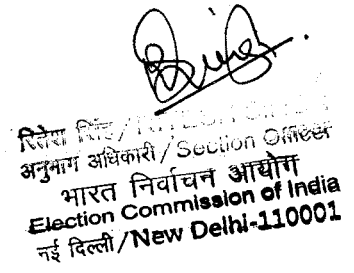 रितेश सिंह/RITESH SINGH
अनुभाग अधिकारी/Section Officer
भारत निर्वाचन आयोग
Election Commission of India
नई दिल्ली/New Delhi-110001